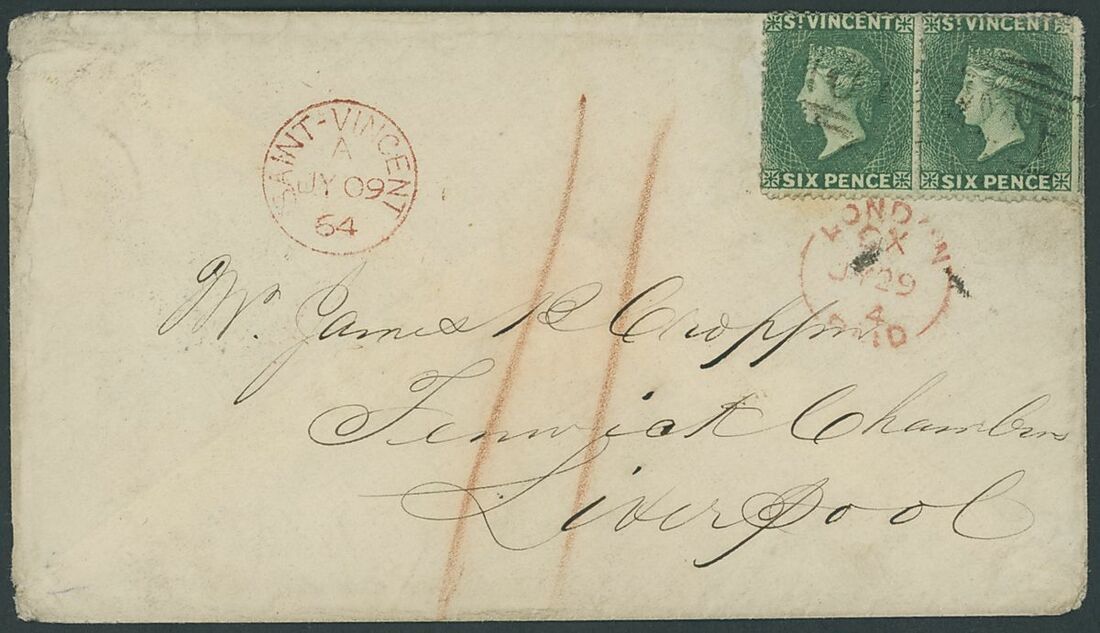 ST VINCENT ST VINCENT
SIX PENCE SIX PENCE
SAINT-VINCENT
A
JY 09
64
LONDON
CX
JY 29
4
PAID
Mr. James B Cropper
Fenwick Chambers
Liverpool